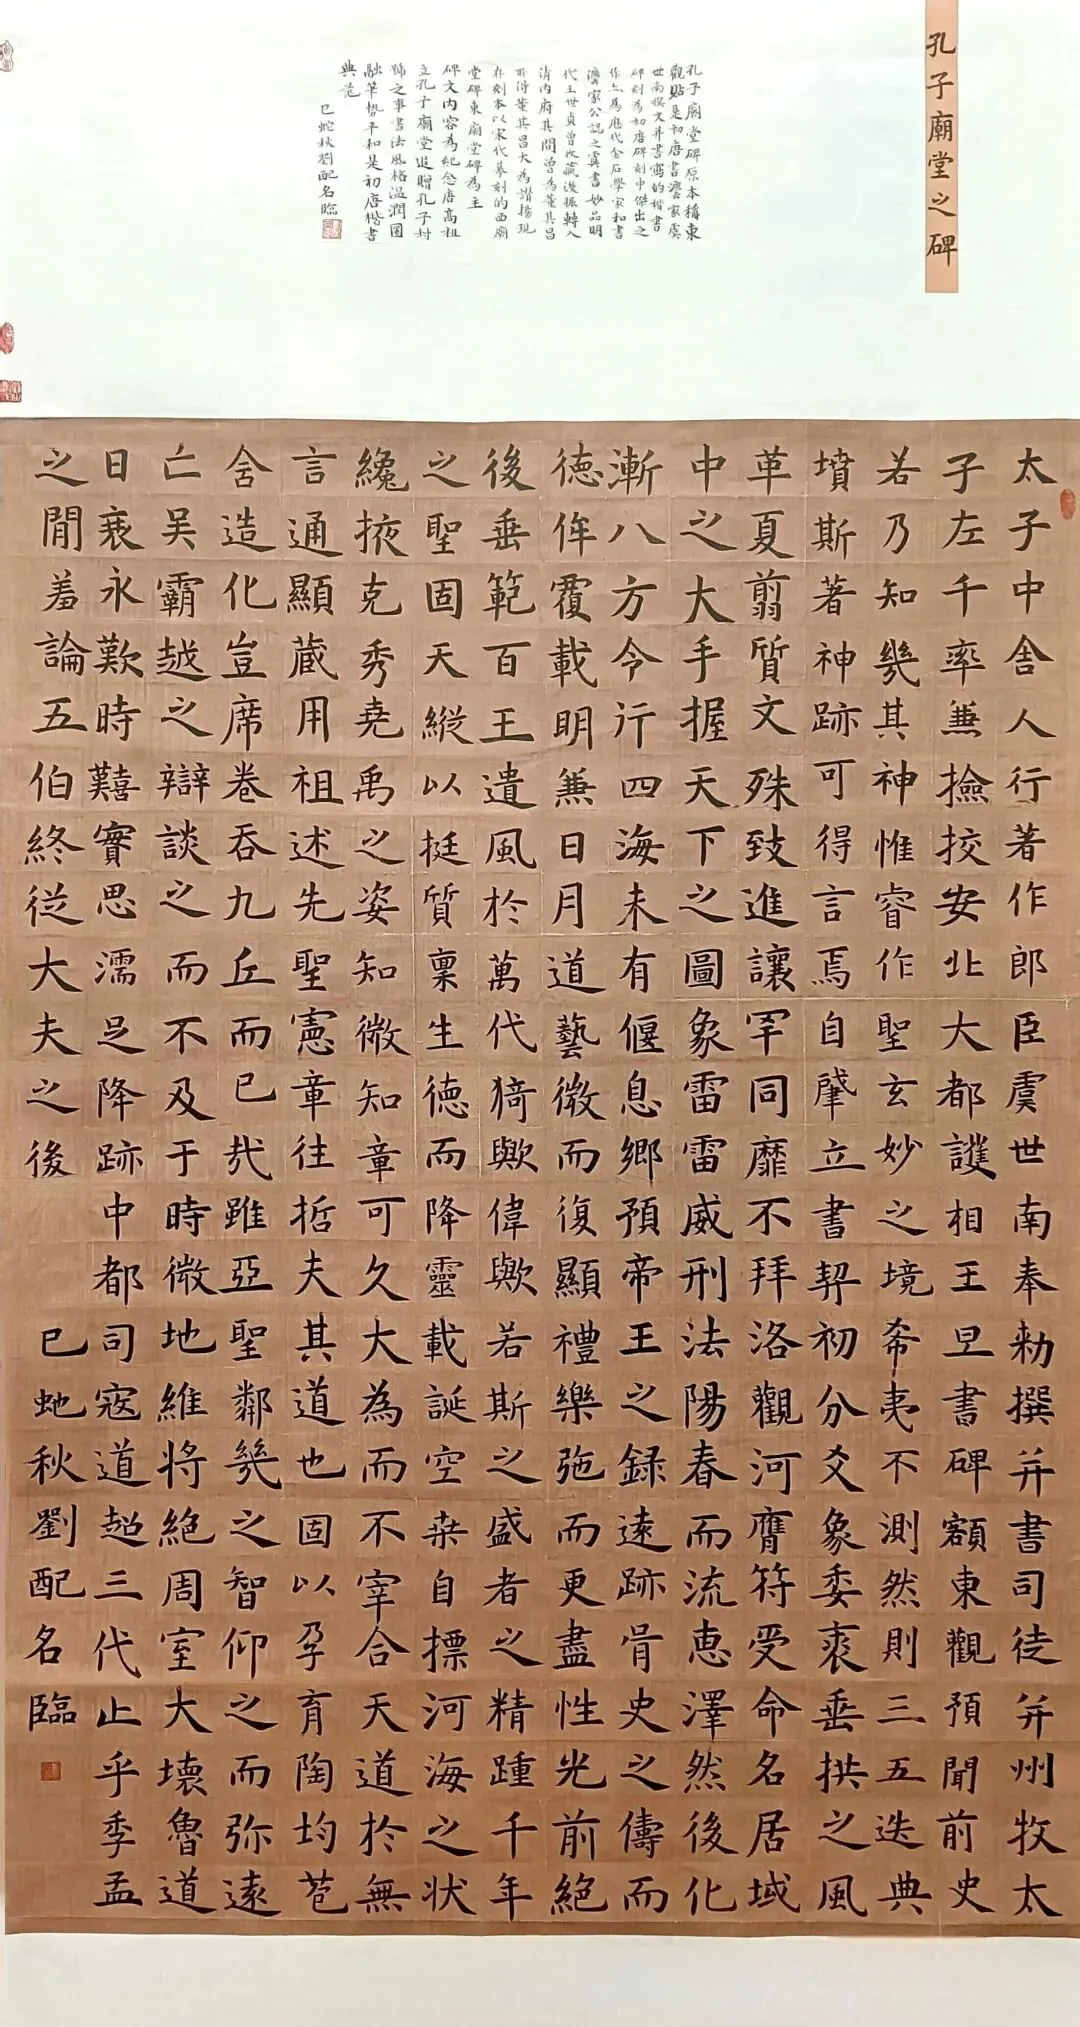 孔子廟堂之碑
孔子廟堂碑原本稱東
觀貼是初唐書灋家虞
世南撰文并書寫的楷書
碑刻為初唐碑刻中傑出之
作亦為歷代金石學家和書
灋家公認之虞書妙品明
代王世貞曾收藏後振轉入
清内府其間曾為董其昌
所得董其昌大為讚揚現
存刻本以宋代摹刻的西廟
堂碑東廟堂碑為主
碑文内容為紀念唐高祖
立孔子廟堂追贈孔子封
號之事書法風格温潤圓
融筆勢平和是初唐楷書
典范
巳蛇秋劉配名臨
太子中舍人行著作郎臣虞世南奉勅撰并書司徒并州牧太
子左千率兼撿挍安北大都護相王旦書碑額東觀預聞前史
若乃知幾其神惟睿作聖玄妙之境希夷不測然則三五迭典
墳斯著神跡可得言焉自肇立書契初分爻象委裘垂拱之風
革夏翦質文殊致進讓罕同靡不拜洛觀河膺符受命名居域
中之大手握天下之圖象雷雷威刑法陽春而流恵澤然後化
漸八方今行四海未有偃息鄉預帝王之録遠跡胥史之儔而
德侔覆載明兼日月道藝微而復顯禮樂弛而更盡性光前絕
後垂範百王遺風於萬代猗歟偉歟若斯之盛者之精踵千年
之聖固天縱以挺質稟生德而降靈載誕空桒自摽河海之状
纔掖克秀堯禹之姿知微知章可久大為而不宰合天道於無
言通顯蔵用祖述先聖憲章往哲夫其道也固以孕育陶均苞
舍造化豈席卷吞九丘而已哉雖亞聖鄰幾之智仰之而弥遠
亡吴霸越之辯談之而不及于時微地維將絕周室大壞魯道
日衰永歎時艱實思濡足降跡中都司寇道超三代止乎季孟
之間羞論五伯終從大夫之後
巳虵秋劉配名臨